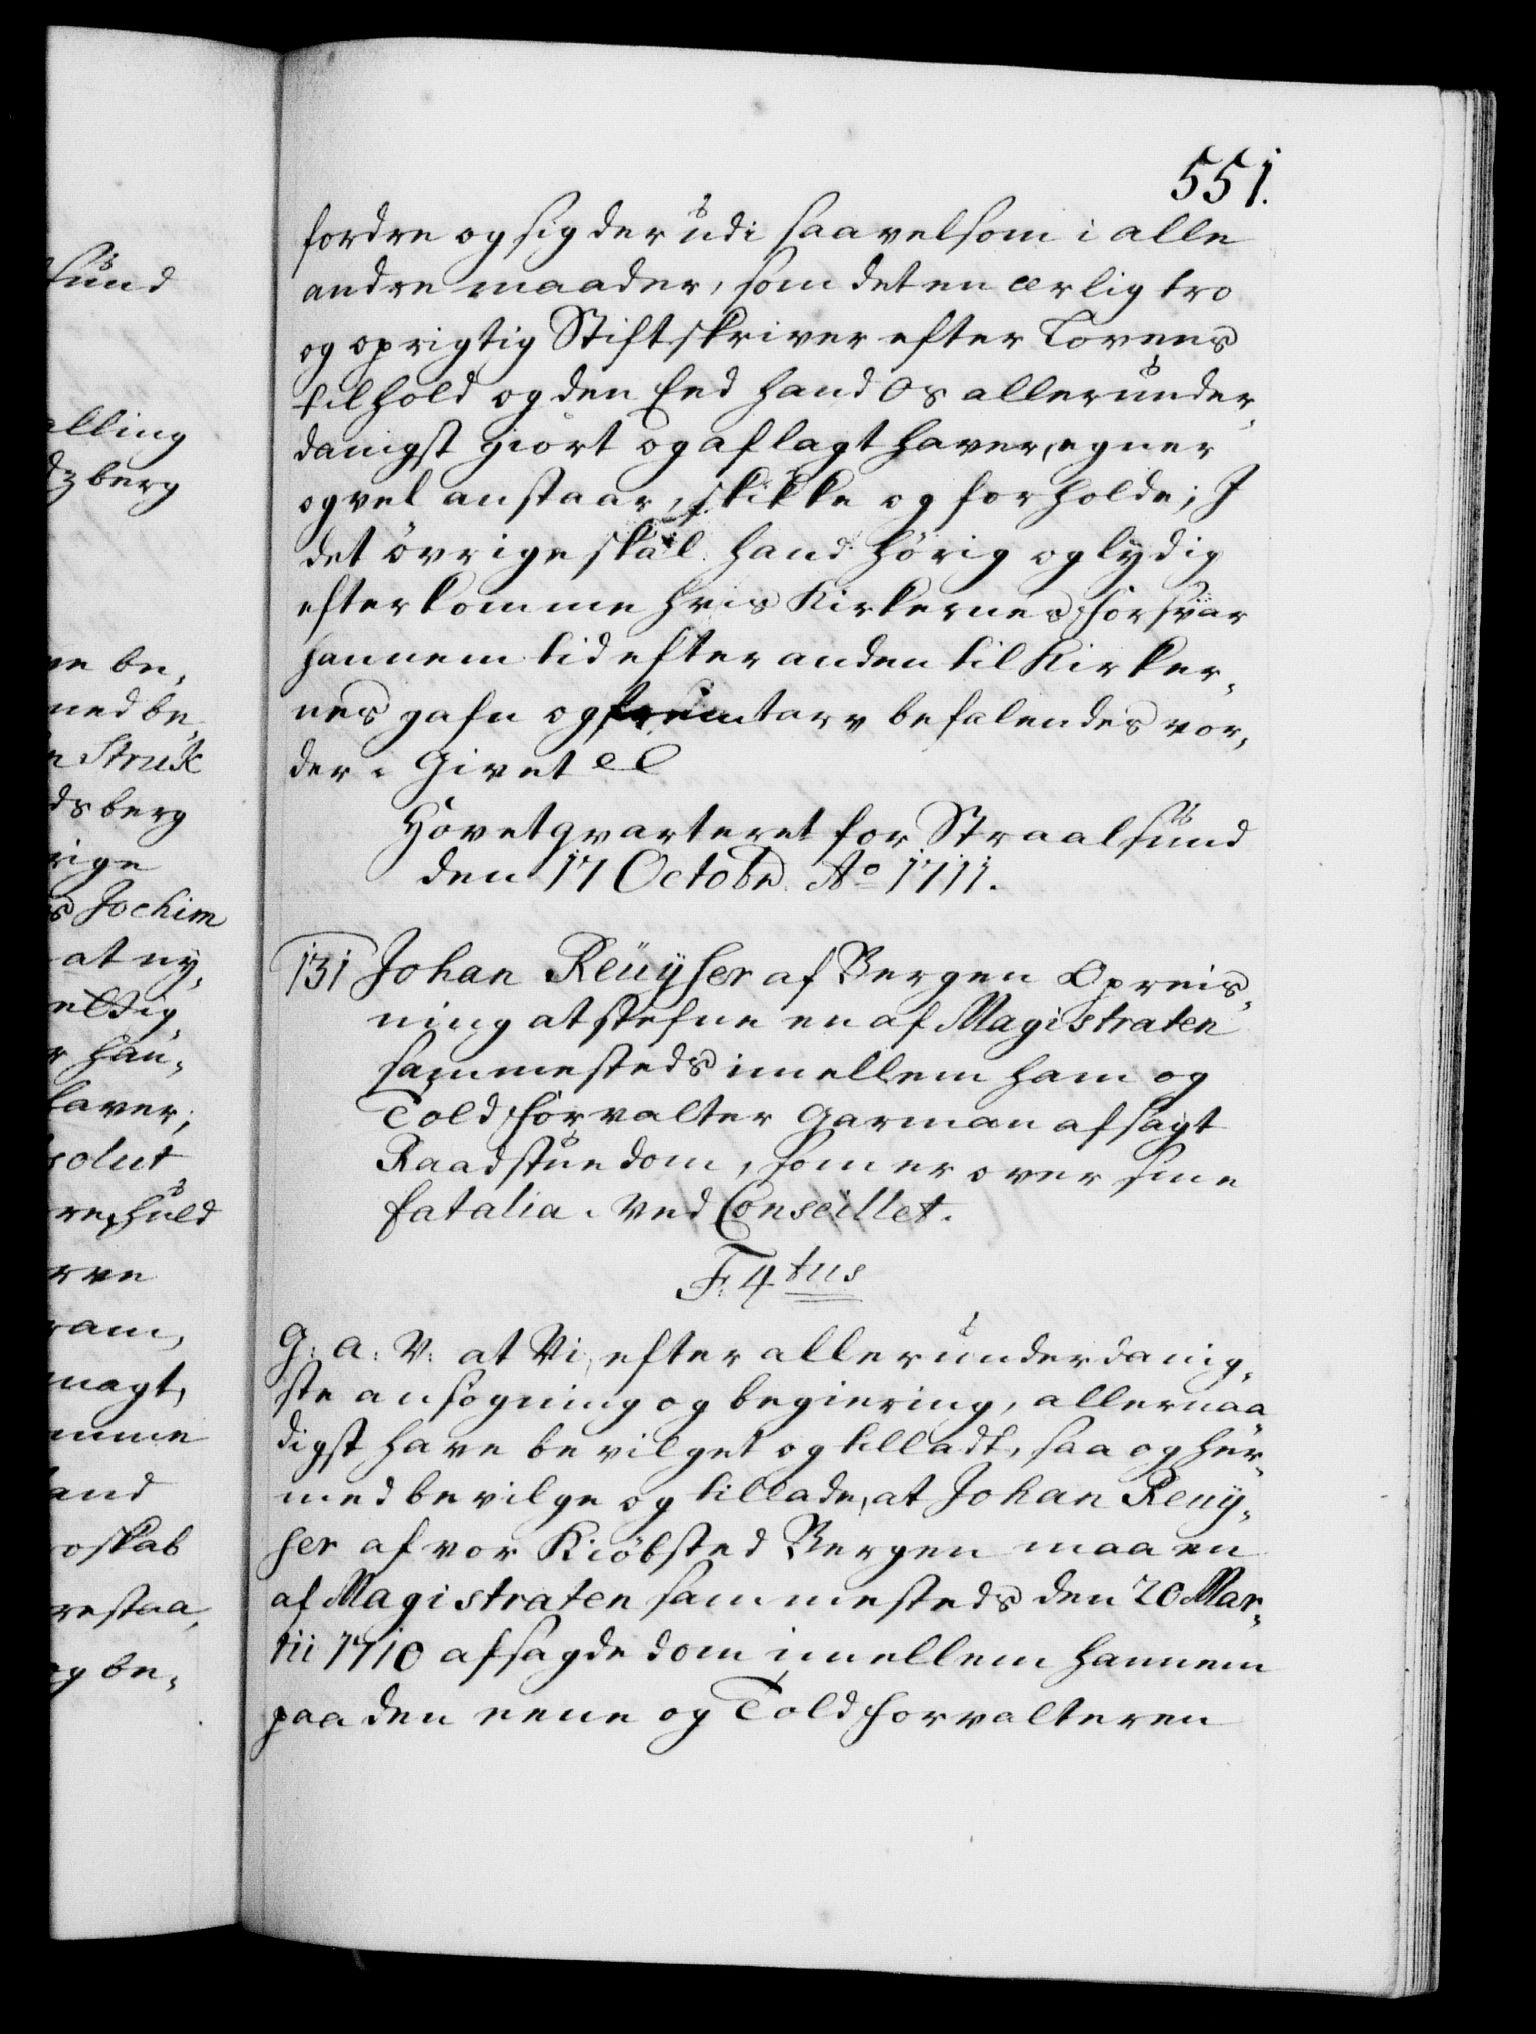 551.
fordre og sig der udi saavelsom i alle
andre maader, som det en ærlig tro
og oprigtig Stiftskriver efter Lovens
tilhold og den Eed hand Os allerunder,
danigst giort og aflagt haver, egner
og vel anstaar, skikke og forholde; J
det övrige skal hand hörig og lydig
efterkomme hvis Kirkernes forsvar
hannem tid efter anden til Kirker,
nes gafn og tarv befalendes vor,
der. Givet
Hovetqvarteret for Straalsund
den 17 Octobr. Ao 1711.
131 Johan Reüyser af Bergen Opreis,
ning at stefne en af Magistraten
sammesteds imellem ham og
Told forvalter Garman afsagt
Raadstue dom, som er over sine
fatalia. Ved Conseillet.
F: 4tus
G: A: V: at Vi, efter allerunderdanig,
ste ansögning og begiering, allernaa
digst have bevilget og tilladt, saa og her,
med bevilge og tillade, at Johan Reuy,
ser af vor Kiöbsted Bergen maa en
af Magistraten sammesteds den 20 Mar,
tii 1710 afsagde dom imellem hannem
paa den eene og Toldforvalteren
sund
alling
dzberg
ve be,
med be,
n Struk
dsberg
rige
s Jochim
at ny,
eldig,
r han,
laver;
solut
re, huld
rve
ram,
magt,
mme
and
oskab
restaa,
og be,